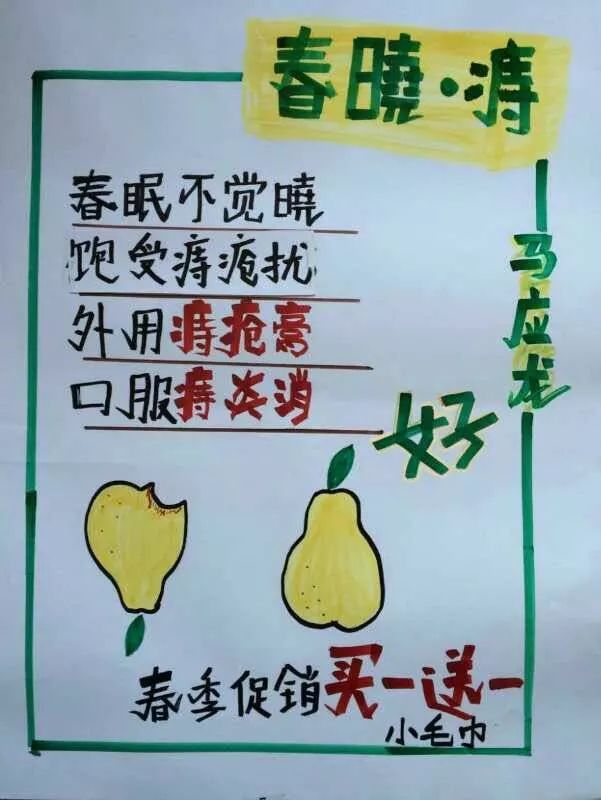 春曉·痔
春眠不觉曉
饱受痔疮扰
外用痔疮膏
口服痔炎消
马应龙
好
春季促销买一送一
小毛巾